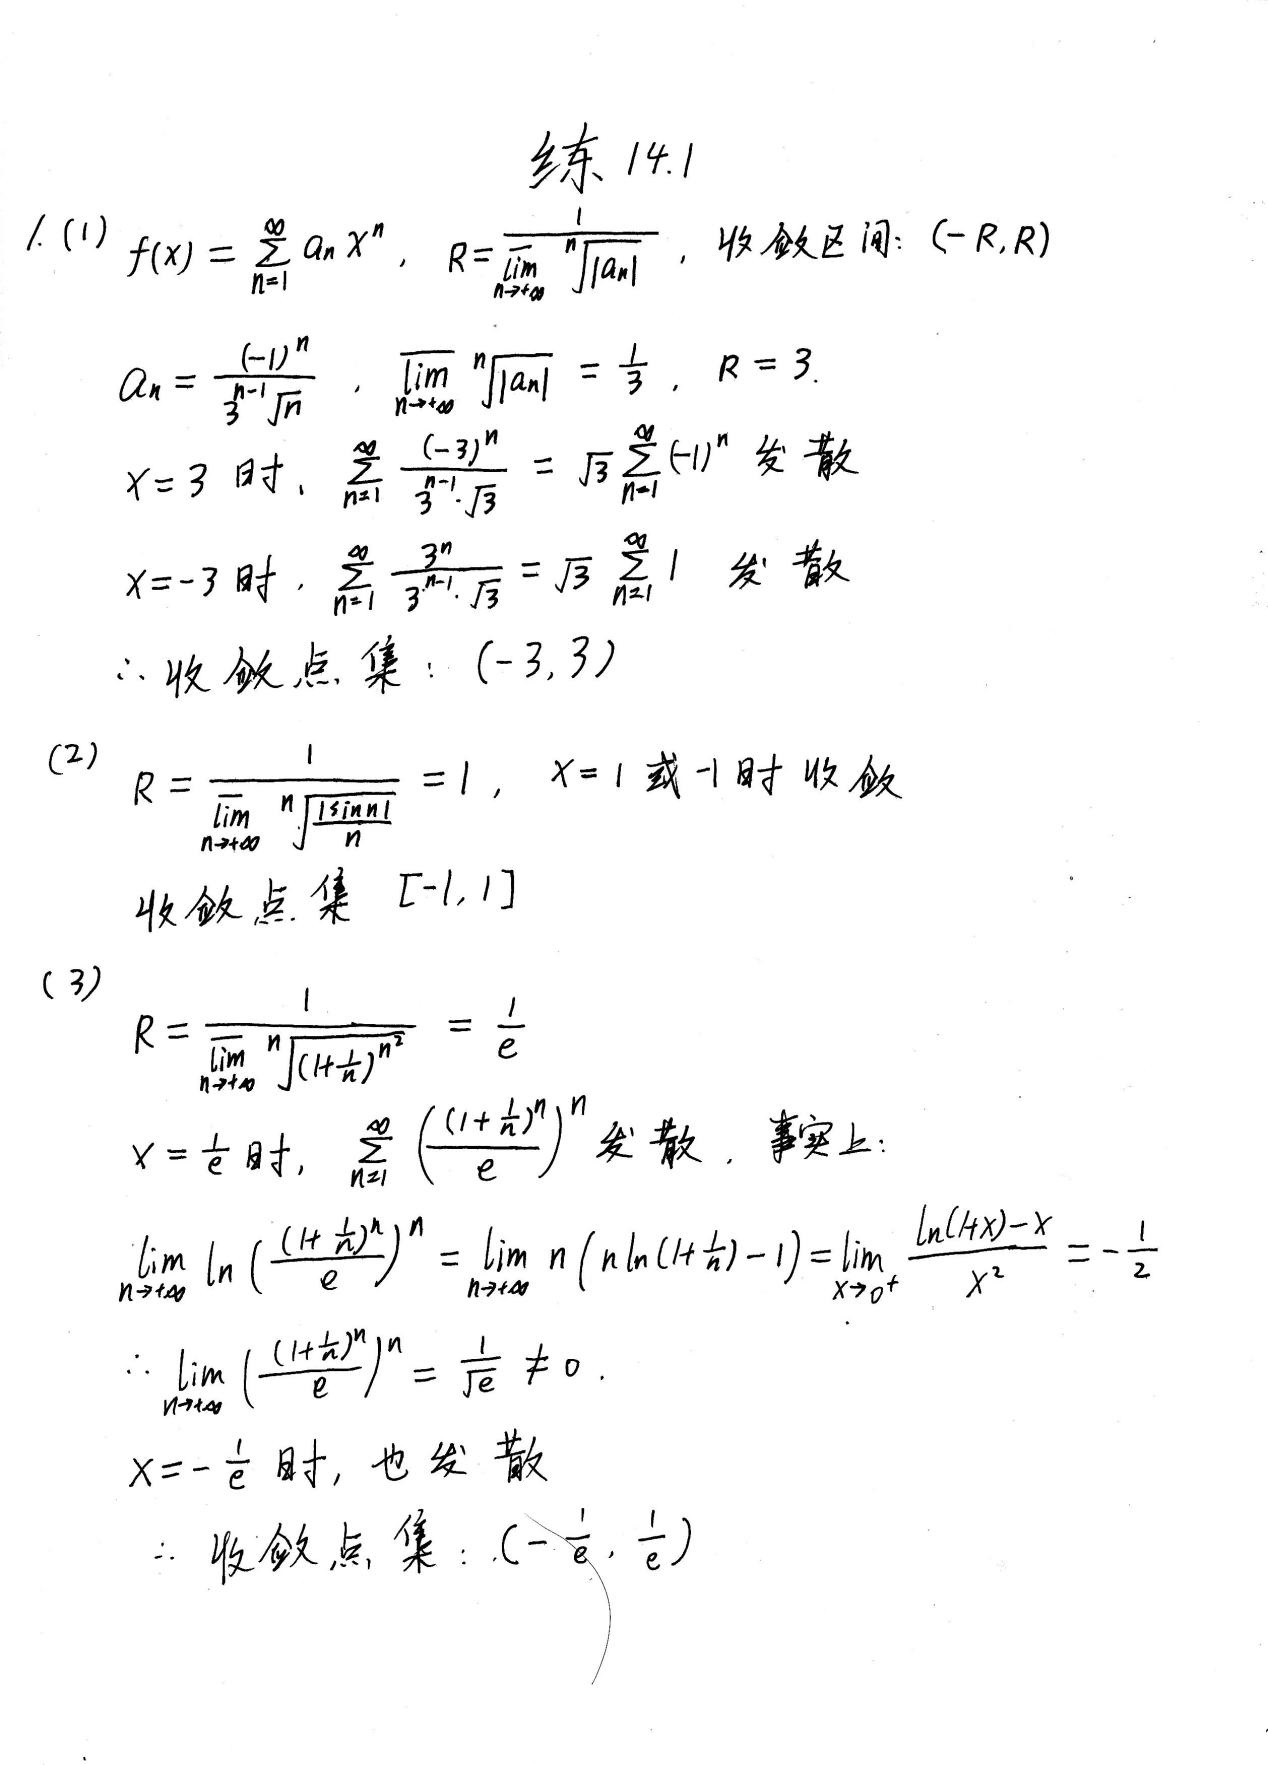 练 14.1
1. (1) f(x) = ∑_{n=1}^{∞} aₙ xⁿ, R = 1 / \overline{lim}_{n→+∞} ⁿ√|aₙ|, 收敛区间: (-R, R)
aₙ = (-1)ⁿ / (3ⁿ⁻¹ √n), \overline{lim}_{n→+∞} ⁿ√|aₙ| = 1/3, R = 3.
x = 3 时, ∑_{n=1}^{∞} (-3)ⁿ / (3ⁿ⁻¹·√3) = √3 ∑_{n=1}^{∞} (-1)ⁿ 发散
x = -3 时, ∑_{n=1}^{∞} 3ⁿ / (3ⁿ⁻¹·√3) = √3 ∑_{n=1}^{∞} 1 发散
∴ 收敛点集: (-3, 3)
(2) R = 1 / \overline{lim}_{n→+∞} ⁿ√(|sin n| / n) = 1, x = 1 或 -1 时 收敛
收敛点集 [-1, 1]
(3)
R = 1 / \overline{lim}_{n→+∞} ⁿ√((1+1/n)^{n²}) = 1/e
x = 1/e 时, ∑_{n=1}^{∞} ((1+1/n)ⁿ / e)ⁿ 发散, 事实上:
lim_{n→+∞} ln((1+1/n)ⁿ / e)ⁿ = lim_{n→+∞} n(n ln(1+1/n) - 1) = lim_{x→0⁺} (ln(1+x) - x) / x² = -1/2
∴ lim_{n→+∞} ((1+1/n)ⁿ / e)ⁿ = 1/√e ≠ 0.
x = -1/e 时, 也发散
∴ 收敛点集: (-1/e, 1/e)